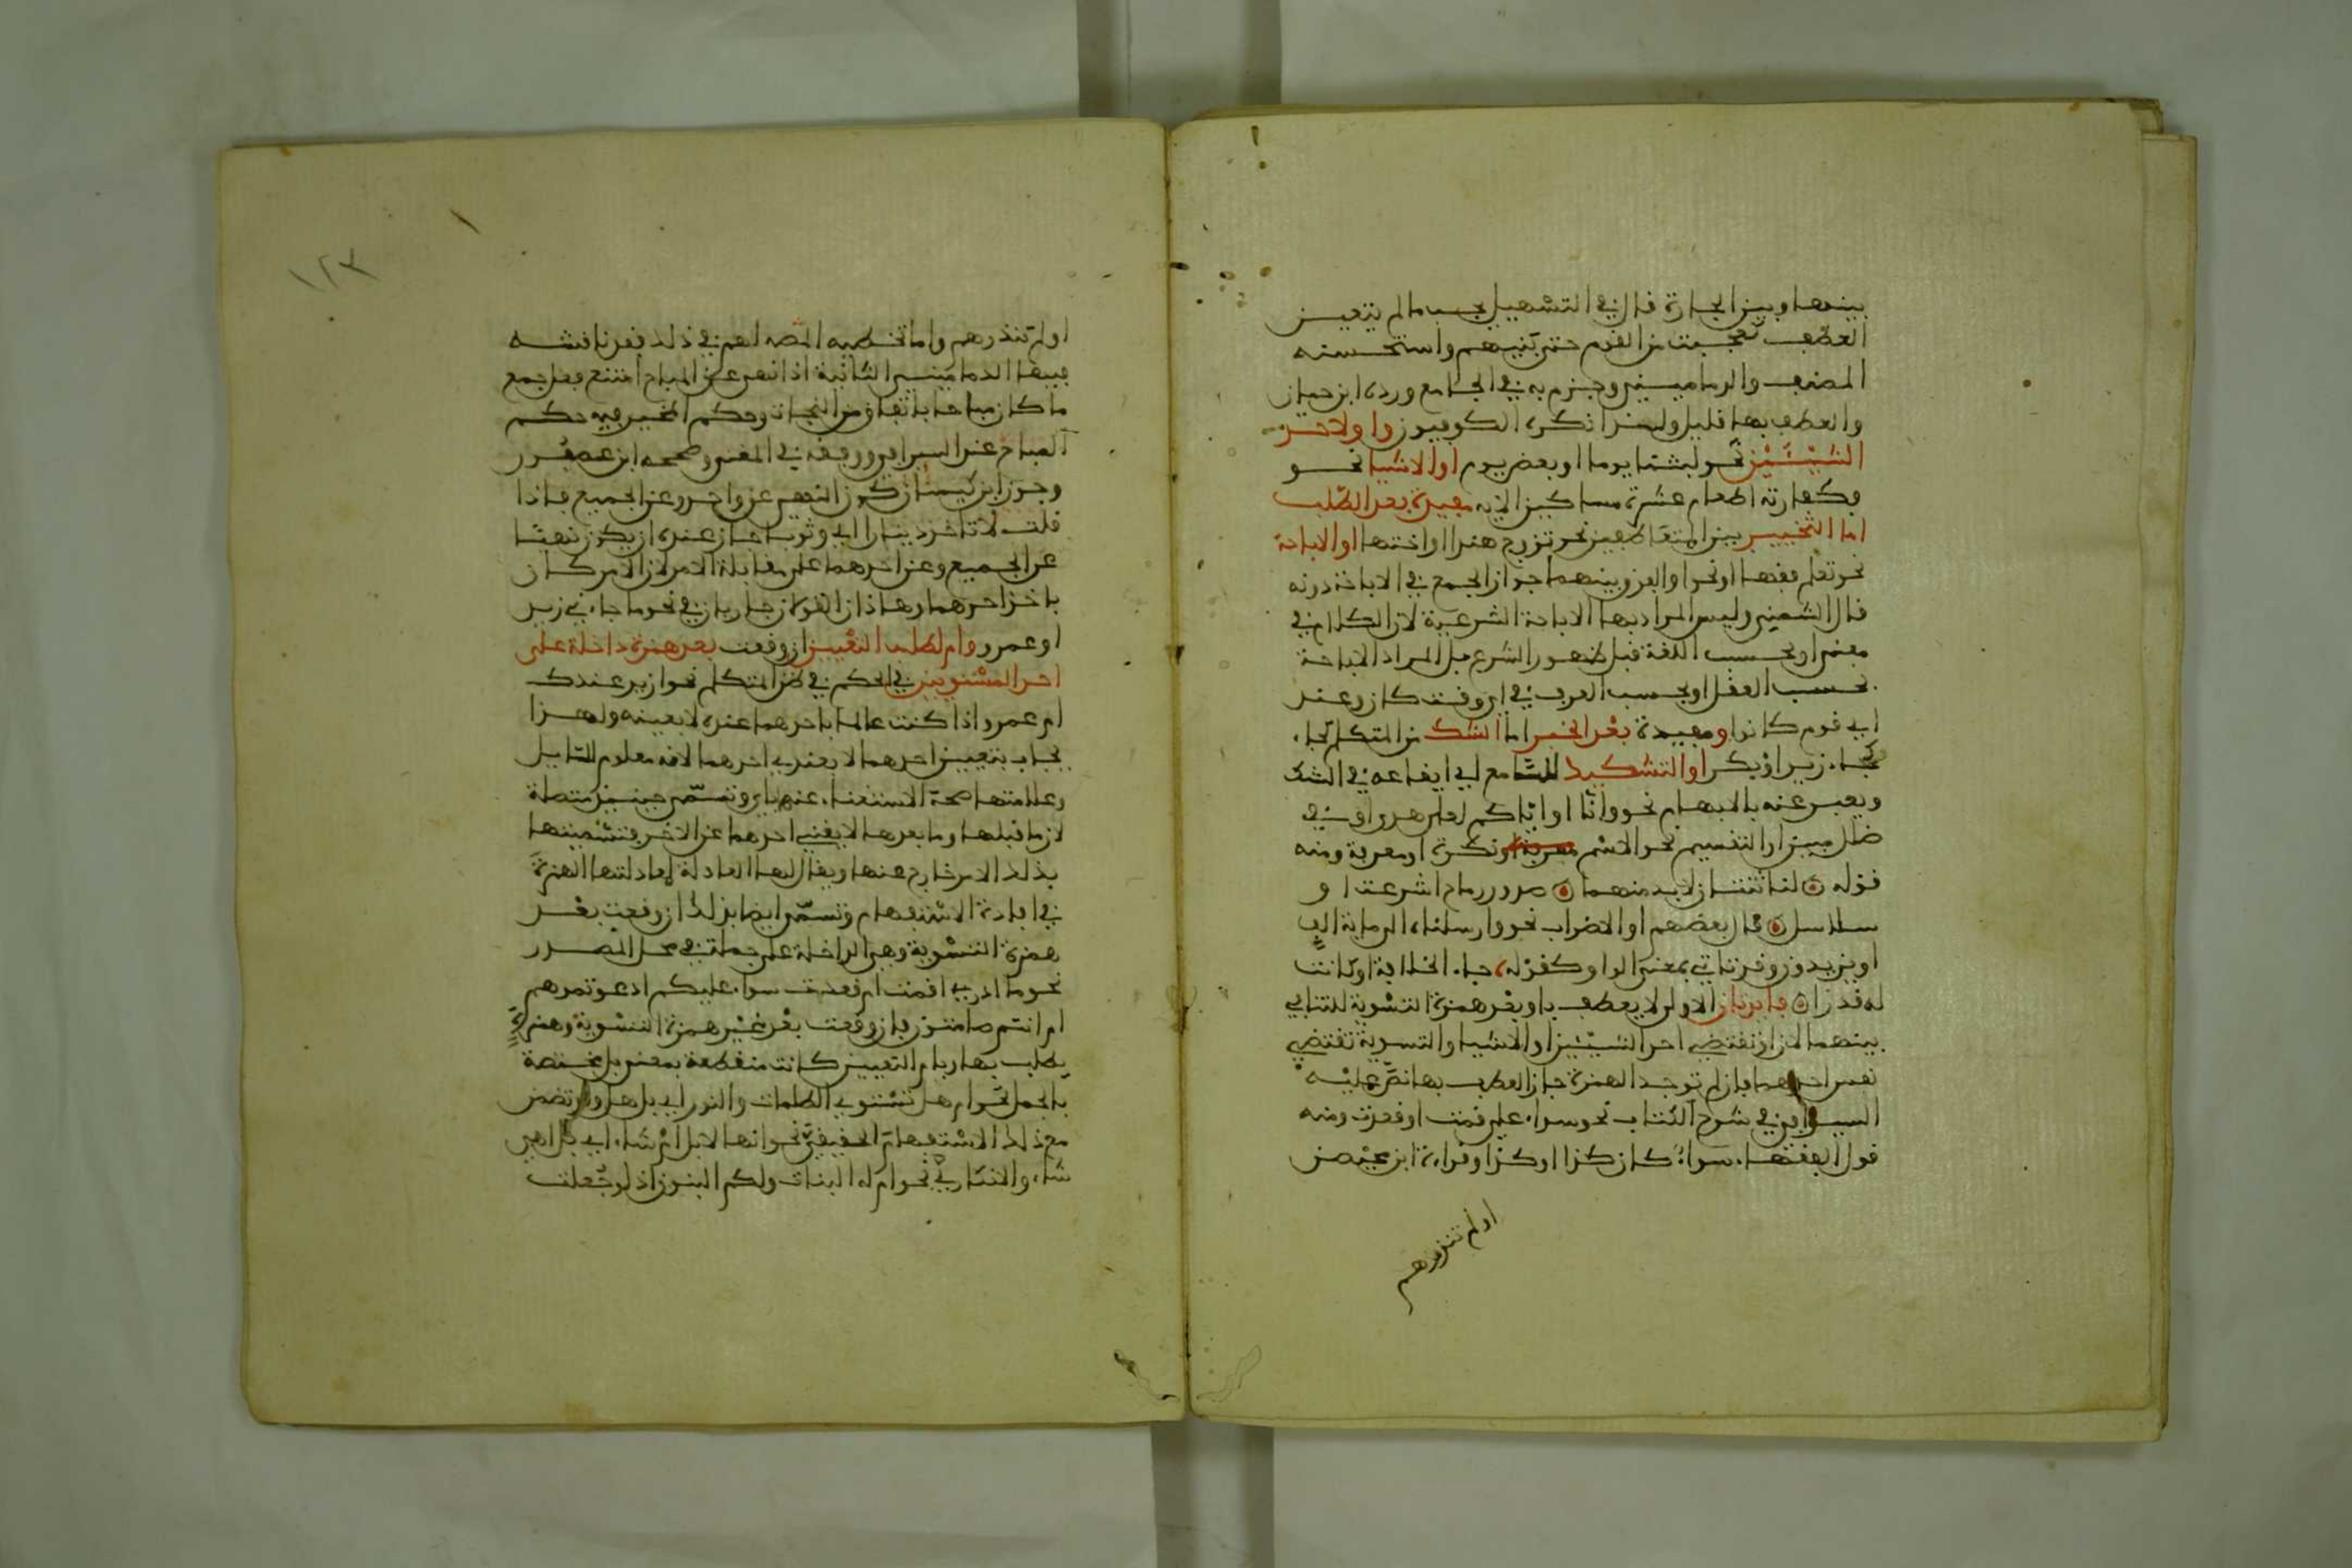 بينها وبين الجارة قال في التسهيل يجب ما لم يتعين
العطف تعجبت من القوم حتى بنيهم واستحسنه
المصنف والدماميني وجزم به في الجامع ورده ابن حيان
والعطف بها قليل ولهذا انكره الكوفيون واو لاحد
الشيئين نحو لبثنا يوما او بعض يوم او الاشيا نحو
فكفارته اطعام عشرة مساكين الاية مفيدة بعد الطلب
اما التخيير بين المتعاطفين نحو تزوج هندا او اختها او الاباحة
نحو تعلم فقها او نحوا والفرق بينهما جواز الجمع في الاباحة دونه
قال الشمني وليس المراد بها الاباحة الشرعية لان الكلام في
معنى او بحسب اللغة قبل ظهور الشرع بل المراد الاباحة
بحسب العقل او بحسب العرف في اي وقت كان وعند
اي قوم كانوا ومفيدة بعد الخبر اما الشك من المتكلم نحو جاء
زيد او بكر او التشكيك للسامع اي ايقاعه في الشك
ويعبر عنه بالابهام نحو وانا او اياكم لعلى هدى او في
ضلل مبين او التقسيم نحو الاسم نكرة او معرفة ومنه
قوله لنا ثنتان لا بد منهما صدور رماح اشرعت او
سلاسل قال بعضهم او الاضراب نحو وارسلناه الى ماية الف
او يزيدون وقد تاتي بمعنى الواو كقوله جاء الخلافة او كانت
له قدرا فايدتان الاولى لا يعطف باو بعد همزة التسوية للتنافي
بينهما لان او تقتضي احد الشيئين او الاشيا والتسوية تقتضي
نعم احدهما فان لم توجد الهمزة جاز العطف بها نص عليه
السيرافي في شرح الكتاب نحو سواء علي قمت او قعدت ومنه
قول الفقهاء سواء كان كذا او كذا وقراءة ابن محيصن
اولم تنذرهم
١٢٣
اولم تنذرهم واما تخطيه المص لهم في ذلك فقد ناقشه
فيها الدماميني الثانية اذا نهي عن المباح امتنع فعل جميع
ما كان مباحا باتفاق من النحاة وحكم المخير فيه حكم
المباح عند السيرافي ووفقه في المغني وصححه ابن عصفور
وجوز ابن كيسان كون النهي عن واحد وعن الجميع فاذا
قلت لا تاخذ دينارا او ثوبا جاز عنده ان يكون نهيا
عن الجميع وعن احدهما على مقابلة الامر لان الامر كان
باخذ احدهما وهاذان القولان جاريان في نحو ما جاء في زيد
او عمرو وام لطلب التعيين ان وقعت بعد همزة داخلة على
احد المستويين في الحكم في ظن المتكلم نحو ازيد عندك
ام عمرو اذا كنت عالما باحدهما عنده لا بعينه ولهذا
يجاب بتعيين احدهما لا بنفي احدهما لانه معلوم للسايل
وعلامتها صحة الاستغناء عنها باي وتسمى حينيذ متصلة
لان ما قبلها وما بعدها لا يغني احدهما عن الاخر فتسميتها
بذلك لامر خارج عنها ويقال لها العادلة لمعادلتها الهمزة
في افادة الاستفهام وتسمى ايضا بذلك ان وقعت بعد
همزة التسوية وهي الداخلة على جملة في محل المصدر
نحو ما ادري اقمت ام قعدت سواء عليكم ادعوتموهم
ام انتم صامتون فان وقعت بعد غير همزة التسوية وهمزة
يطلب بها وبام التعيين كانت منقطعة بمعنى بل مختصة
بالجمل نحو ام هل تستوي الظلمات والنور اي بل هل وقد تضمن
مع ذلك الاستفهام الحقيقي نحو انها لابل ام شاء اي بل اهي
شاء والانكاري نحو ام له البنات ولكم البنون اذ لو جعلت